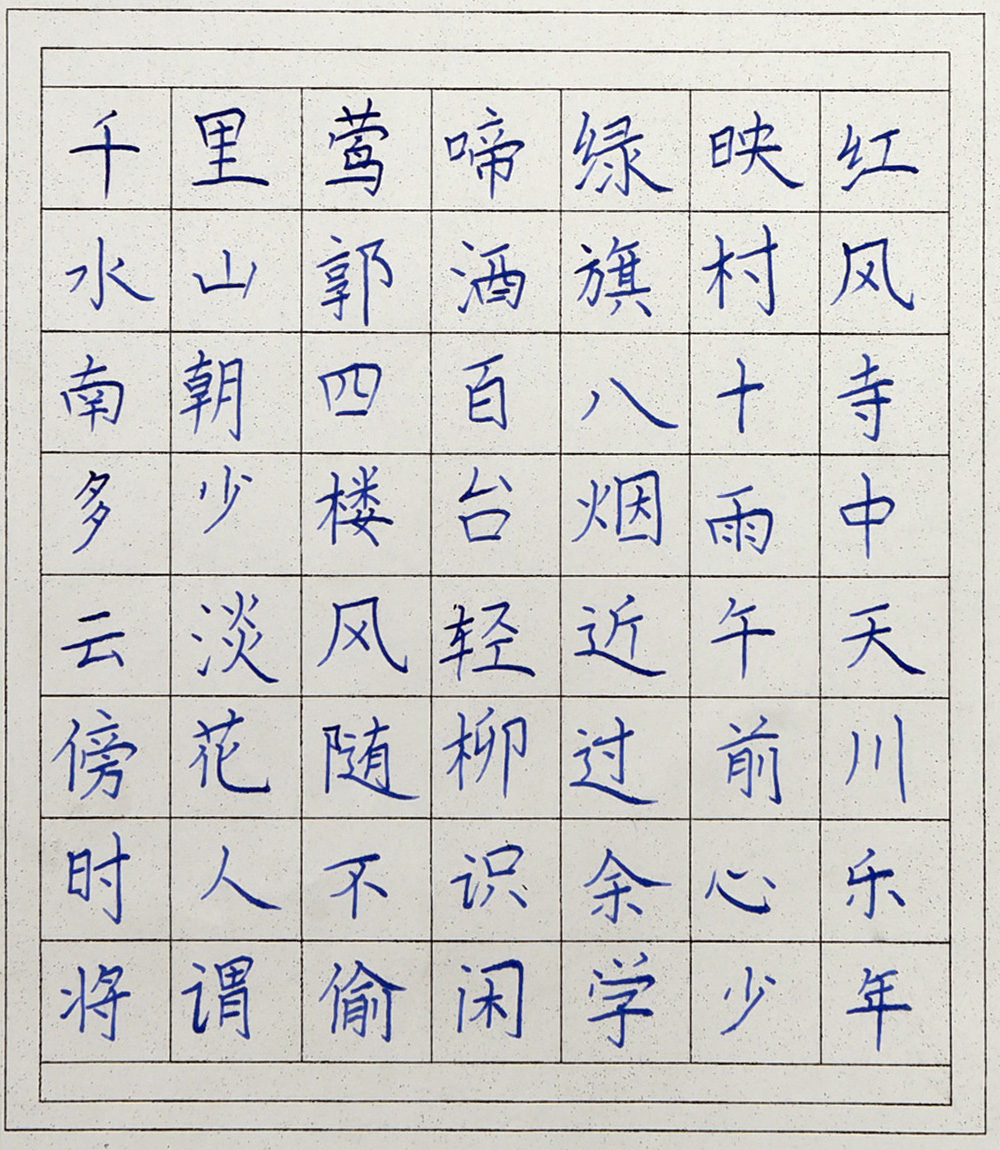 千里莺啼绿映红
水山郭酒旗村风
南朝四百八十寺
多少楼台烟雨中
云淡风轻近午天
傍花随柳过前川
时人不识余心乐
将谓偷闲学少年